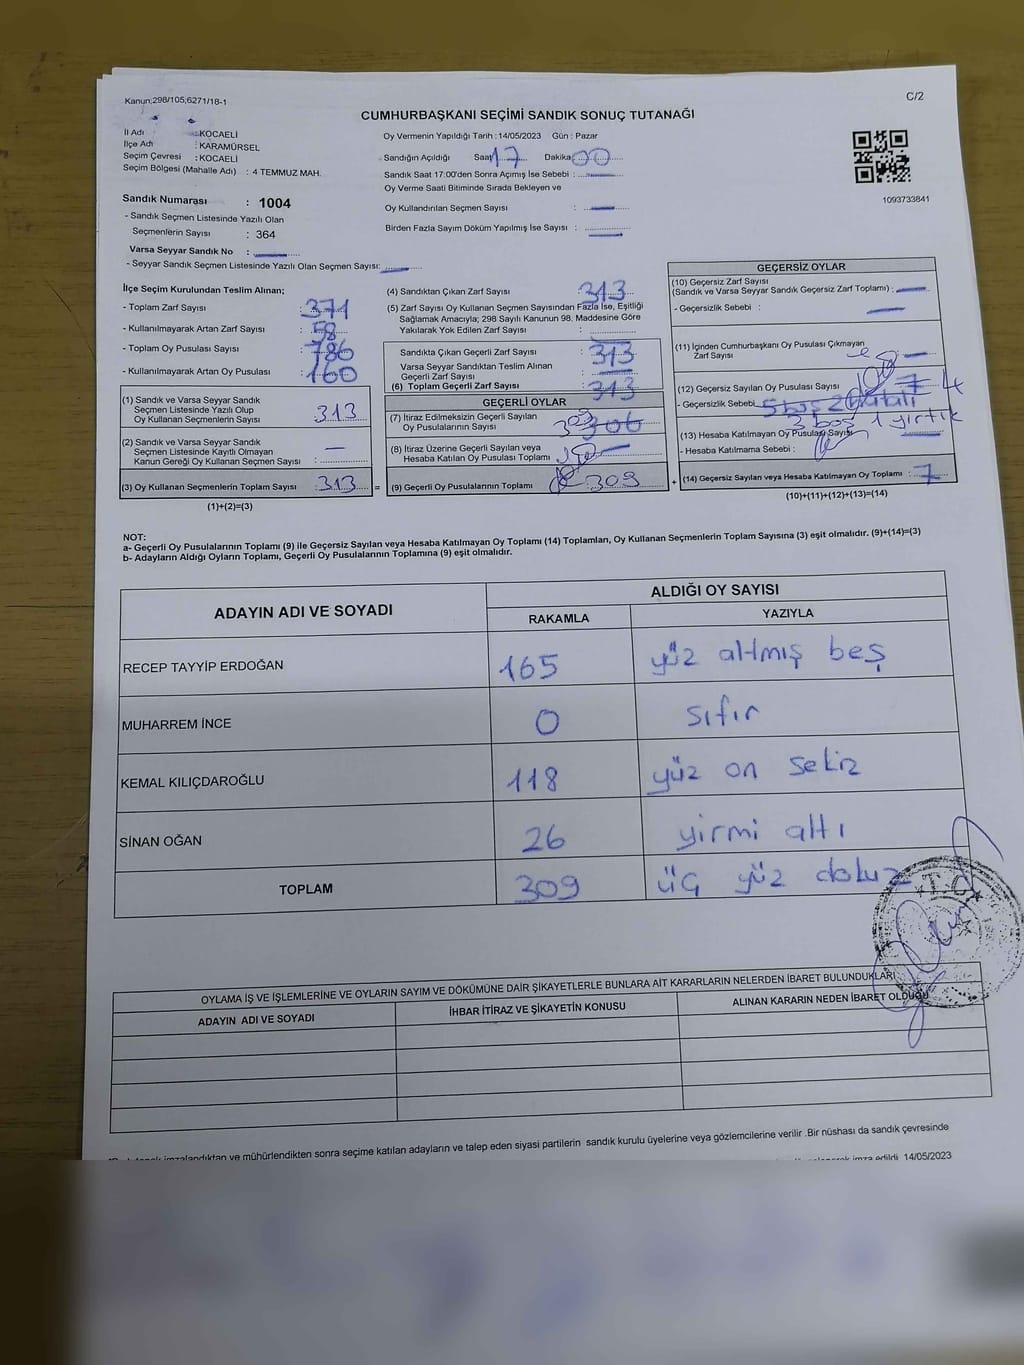 Kanun;298/105,6271/18-1
C/2
CUMHURBAŞKANI SEÇİMİ SANDIK SONUÇ TUTANAĞI
İl Adı : KOCAELİ
İlçe Adı : KARAMÜRSEL
Seçim Çevresi : KOCAELİ
Seçim Bölgesi (Mahalle Adı) : 4 TEMMUZ MAH.
Sandık Numarası : 1004
- Sandık Seçmen Listesinde Yazılı Olan
Seçmenlerin Sayısı : 364
Varsa Seyyar Sandık No :
- Seyyar Sandık Seçmen Listesinde Yazılı Olan Seçmen Sayısı:
Oy Vermenin Yapıldığı Tarih : 14/05/2023 Gün : Pazar
Sandığın Açıldığı Saat 17 Dakika 00
Sandık Saat 17:00'den Sonra Açımış İse Sebebi :
Oy Verme Saati Bitiminde Sırada Bekleyen ve
Oy Kullandırılan Seçmen Sayısı :
Birden Fazla Sayım Döküm Yapılmış İse Sayısı :
1093733841
İlçe Seçim Kurulundan Teslim Alınan;
- Toplam Zarf Sayısı : 371
- Kullanılmayarak Artan Zarf Sayısı : 58
- Toplam Oy Pusulası Sayısı : 786
- Kullanılmayarak Artan Oy Pusulası : 160
(1) Sandık ve Varsa Seyyar Sandık
Seçmen Listesinde Yazılı Olup
Oy Kullanan Seçmenlerin Sayısı : 313
(2) Sandık ve Varsa Seyyar Sandık
Seçmen Listesinde Kayıtlı Olmayan
Kanun Gereği Oy Kullanan Seçmen Sayısı : —
(3) Oy Kullanan Seçmenlerin Toplam Sayısı : 313 =
(1)+(2)=(3)
(4) Sandıktan Çıkan Zarf Sayısı : 313
(5) Zarf Sayısı Oy Kullanan Seçmen Sayısından Fazla İse, Eşitliği
Sağlamak Amacıyla; 298 Sayılı Kanunun 98. Maddesine Göre
Yakılarak Yok Edilen Zarf Sayısı :
Sandıkta Çıkan Geçerli Zarf Sayısı : 313
Varsa Seyyar Sandıktan Teslim Alınan
Geçerli Zarf Sayısı : —
(6) Toplam Geçerli Zarf Sayısı : 313
GEÇERLİ OYLAR
(7) İtiraz Edilmeksizin Geçerli Sayılan
Oy Pusulalarının Sayısı : 309 306
(8) İtiraz Üzerine Geçerli Sayılan veya
Hesaba Katılan Oy Pusulası Toplamı
(9) Geçerli Oy Pusulalarının Toplamı 309 +
GEÇERSİZ OYLAR
(10) Geçersiz Zarf Sayısı
(Sandık ve Varsa Seyyar Sandık Geçersiz Zarf Toplamı) : —
- Geçersizlik Sebebi : —
(11) İçinden Cumhurbaşkanı Oy Pusulası Çıkmayan
Zarf Sayısı : —
(12) Geçersiz Sayılan Oy Pusulası Sayısı : 7 4
- Geçersizlik Sebebi 5 boş 2 hatalı
3 boş 1 yırtık
(13) Hesaba Katılmayan Oy Pusulası Sayısı —
- Hesaba Katılmama Sebebi :
(14) Geçersiz Sayılan veya Hesaba Katılmayan Oy Toplamı : 7
(10)+(11)+(12)+(13)=(14)
NOT:
a- Geçerli Oy Pusulalarının Toplamı (9) ile Geçersiz Sayılan veya Hesaba Katılmayan Oy Toplamı (14) Toplamları, Oy Kullanan Seçmenlerin Toplam Sayısına (3) eşit olmalıdır. (9)+(14)=(3)
b- Adayların Aldığı Oyların Toplamı, Geçerli Oy Pusulalarının Toplamına (9) eşit olmalıdır.
ADAYIN ADI VE SOYADI
ALDIĞI OY SAYISI
RAKAMLA YAZIYLA
RECEP TAYYİP ERDOĞAN 165 yüz altmış beş
MUHARREM İNCE 0 sıfır
KEMAL KILIÇDAROĞLU 118 yüz on sekiz
SİNAN OĞAN 26 yirmi altı
TOPLAM 309 üç yüz dokuz
T.C.
OYLAMA İŞ VE İŞLEMLERİNE VE OYLARIN SAYIM VE DÖKÜMÜNE DAİR ŞİKAYETLERLE BUNLARA AİT KARARLARIN NELERDEN İBARET BULUNDUKLARI
ADAYIN ADI VE SOYADI İHBAR İTİRAZ VE ŞİKAYETİN KONUSU ALINAN KARARIN NEDEN İBARET OLDUĞU
imzalandıktan ve mühürlendikten sonra seçime katılan adayların ve talep eden siyasi partilerin sandık kurulu üyelerine veya gözlemcilerine verilir .Bir nüshası da sandık çevresinde
imza edildi 14/05/2023